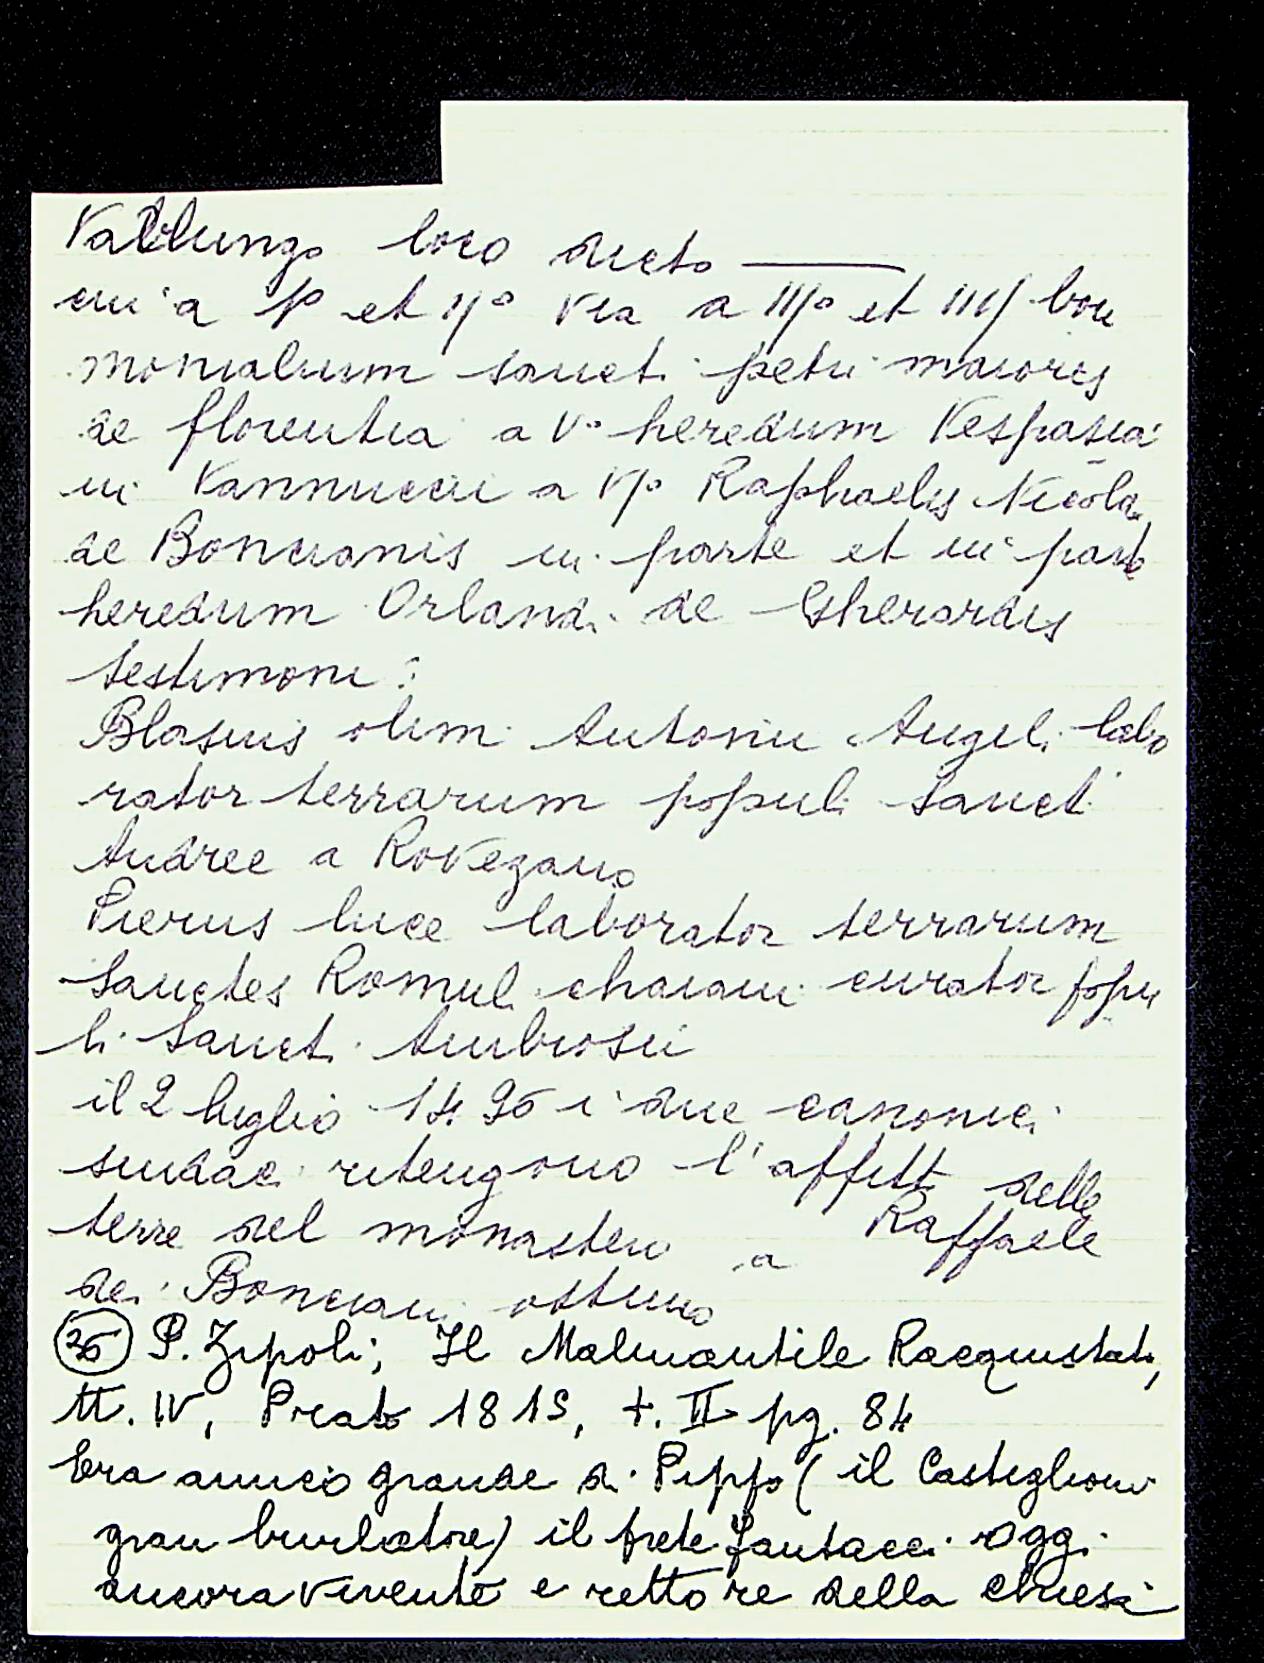 Vallunga loco dicto
cui a p° et II° via a III° et IIII bon
monialium sancti petri maioris
de florentia a V° heredum Vespasia
ni Vannuccii a VI° Raphaelis Nicola
de Boncianis in parte et in parte
heredum Orlandi de Gherardis
testimoni:
Blasius olim Antonii Angeli labo
rator terrarum populi Sancti
Andree a Rovezano
Pierus luce laborator terrarum
Sanctes Romuli curator popu
li Sancti Ambrosii
il 2 luglio i due canonici
sindaci ritengono l'affitto delle
terre del monastero a Raffaele
dei Bonciani ottimo
P. Zipoli; Il Malmantile Racquistato,
tt. IV, Prato 1815, t. II pg. 84
Era amico grande di Pippo (il Castiglioni
gran burlatore) il prete Fantacci oggi
ancora vivente e rettore della chiesa